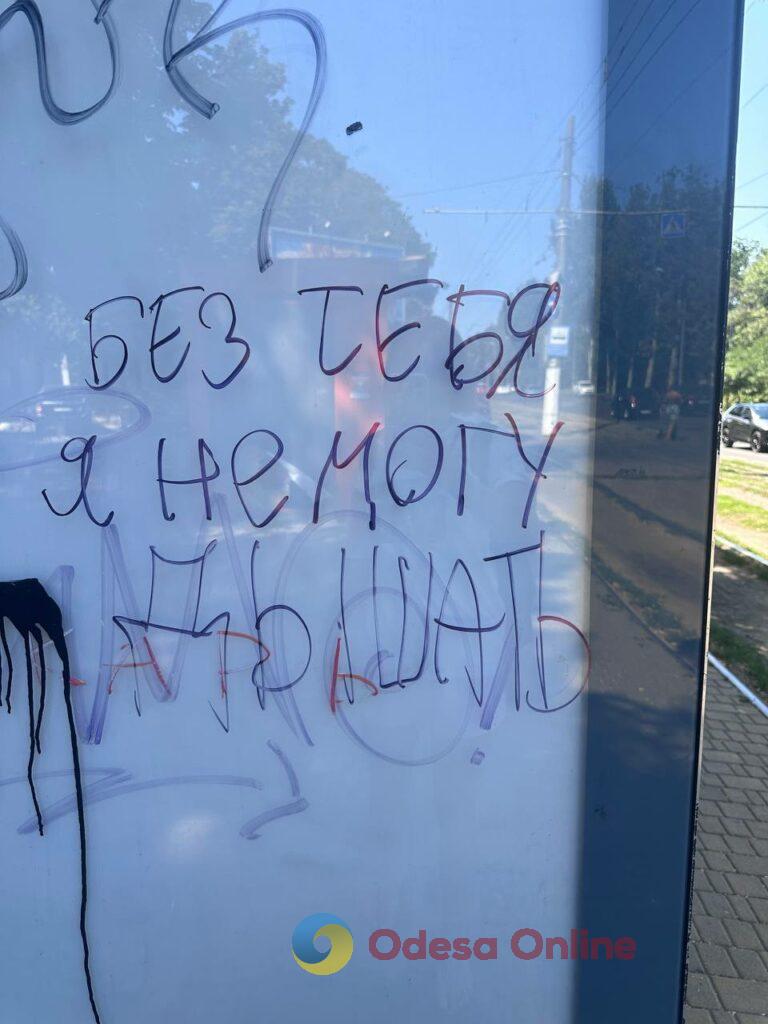 БЕЗ ТЕБЯ
Я НЕ МОГУ
ДЫШАТЬ
Odesa Online